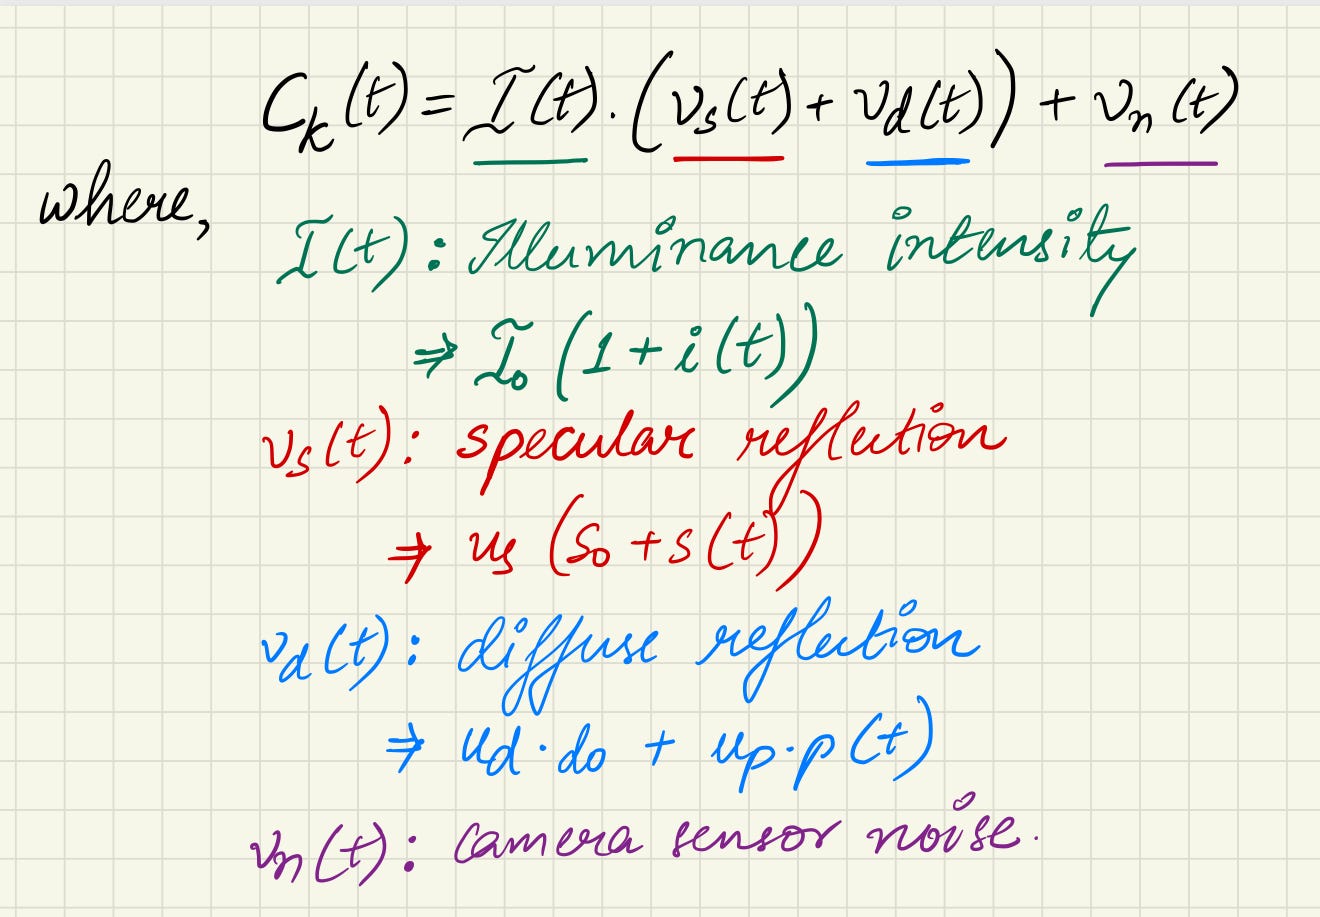 C_k(t) = I(t) · (v_s(t) + v_d(t)) + v_n(t)
where,
I(t) : Illuminance intensity
⇒ I_0 (1 + i(t))
v_s(t) : specular reflection
⇒ u_s (s_0 + s(t))
v_d(t) : diffuse reflection
⇒ u_d · d_0 + u_p · p(t)
v_n(t) : camera sensor noise.